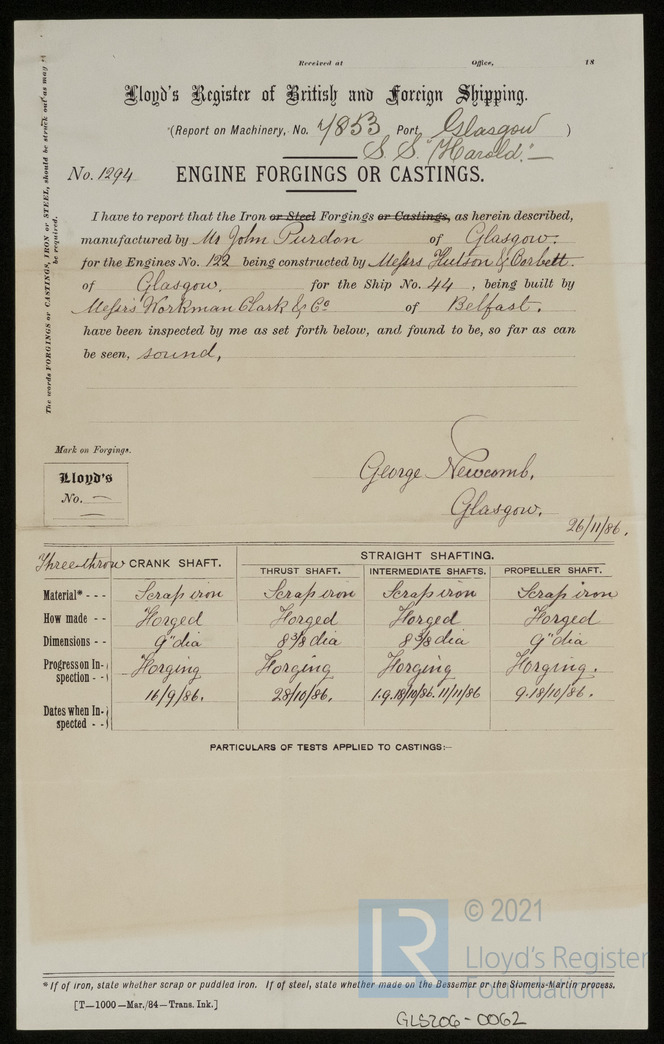 Received at Office, 18
Lloyd's Register of British and Foreign Shipping.
(Report on Machinery, No. 7853 Port Glasgow )
S. S. "Harold."
No. 1294 ENGINE FORGINGS OR CASTINGS.
I have to report that the Iron or Steel Forgings or Castings, as herein described,
manufactured by Mr John Purdon of Glasgow.
for the Engines No. 122 being constructed by Messrs Hutson & Corbett
of Glasgow. for the Ship No. 44 , being built by
Messrs Workman Clark & Co of Belfast.
have been inspected by me as set forth below, and found to be, so far as can
be seen, sound,
The words FORGINGS or CASTINGS, IRON or STEEL, should be struck out as may
be required.
Mark on Forgings.
Lloyd's
No. —
George Newcomb.
Glasgow.
26/11/86.
Three-throw CRANK SHAFT. STRAIGHT SHAFTING.
THRUST SHAFT. INTERMEDIATE SHAFTS. PROPELLER SHAFT.
Material* - - - Scrap iron Scrap iron Scrap iron Scrap iron
How made - - Forged Forged Forged Forged
Dimensions - - 9" dia 8 3/8 dia 8 3/8 dia 9" dia
Progress on In-spection - - Forging Forging Forging Forging.
Dates when In-spected - - 16/9/86. 28/10/86. 1.9.18/10/86. 11/11/86 9.18/10/86.
PARTICULARS OF TESTS APPLIED TO CASTINGS:—
© 2021
LR
Lloyd's Register
Foundation
*If of iron, state whether scrap or puddled iron. If of steel, state whether made on the Bessemer or the Siemens-Martin process.
[T—1000—Mar./84—Trans. Ink.]
GLS206-0062